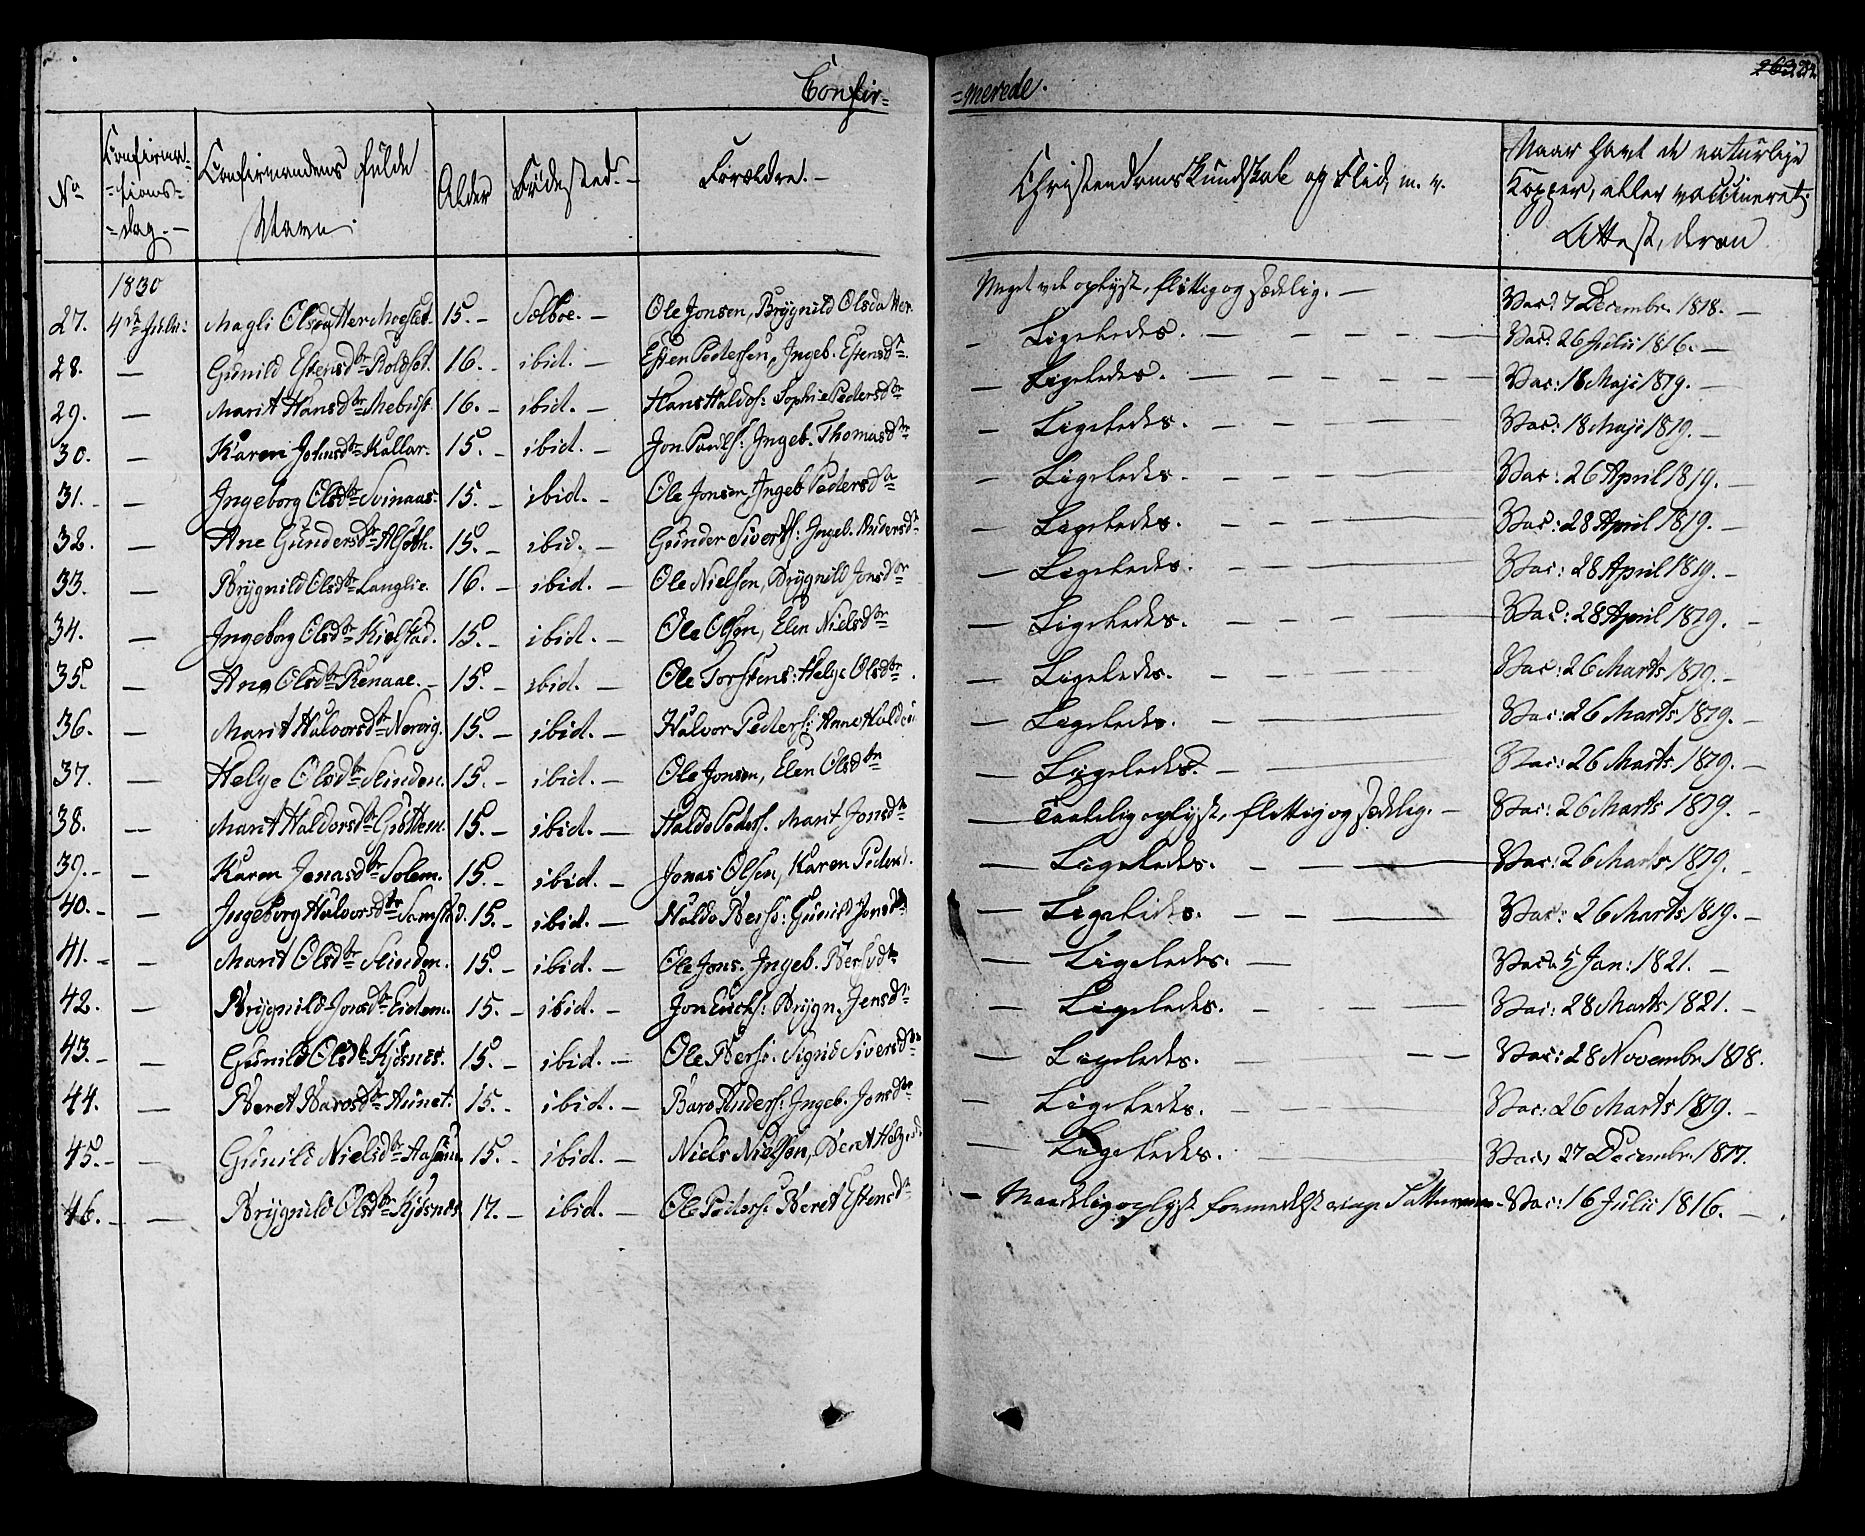 Confir=
=merede.
No
Confirma-
=tions-
=dag.-
Confirmandens fulde
Navn.
Alder
Födested.-
Forældre.-
Christendomskundskab og Flid, m. v.
Naar havt de naturlige
Kopper, eller vaccineret.
Attest, derom
1830
27. 4de Julii: Magli Olsdatter Moeslet. 15.- Sælboe.- Ole Jonsen, Brÿgnild Olsdatter. Meget vel oplyst, flittig og sædelig.- Vac: 7 Decembr. 1818.-
28. - Gunild Estensdtr Roldset. 16.- ibid.- Esten Pedersen, Ingeb. Estensdr. - Ligeledes. - Vac: 26 Julii 1816.-
29. - Marit Hansdtr Mebust. 16.- ibid.- Hans Haldos: Sophie Pedersdtr - Ligeledes. - Vac: 18 Maji 1819.-
30. - Karen Johnsdtr Kallar. 15.- ibid.- Jon Pauls: Ingeb. Thomasdtr - Ligeledes. - Vac: 18 Maji 1819.-
31.- - Ingeborg Olsdtr Svinaas. 15.- ibid.- Ole Jonsen, Ingeb Pedersdtr - Ligeledes. - Vac: 26 April 1819.-
32. - Ane Gundersdtr Alseth. 15.- ibid.- Gunder Siverts: Ingeb. Andersdtr - Ligeledes. - Vac: 28 April 1819.-
33. - Brÿgnild Olsdtr Langlie. 16.- ibid.- Ole Nielsen, Brÿgnild Jonsdtr - Ligeledes. - Vac: 28 April 1819.-
34. - Ingeborg Olsdtr Kielstad. 15.- ibid.- Ole Olsen, Elen Nielsdtr - Ligeledes. - Vac: 28 April 1819.-
35. - Ane Olsdtr Renaae.- 15.- ibid.- Ole Torstens: Helge Olsdtr. - Ligeledes. - Vac: 26 Marts 1819.-
36. - Marit Halvorsdtr Nervig. 15.- ibid.- Halvor Peders: Anne Haldos - Ligeledes. - Vac: 26 Marts 1819.-
37. - Helge Olsdtr Slinden. 15.- ibid.- Ole Jonsen, Elen Olsdtr - Ligeledes. - Vac: 26 Marts 1819.-
38. - Marit Haldorsdtr Gröttem. 15.- ibid.- Haldo Peders. Marit Jonsdtr - Taalelig oplyst, flittig og sædelig.- Vac: 26 Marts 1819.-
39.- - Karen Jonasdtr Solem. 15.- ibid.- Jonas Olsen, Karen Peders. - Ligeledes. - Vac: 26 Marts 1819.-
40.- - Ingeborg Halvorsdtr Samstad. 15.- ibid.- Haldo Bers: Gunild Jonsd - Ligeledes. - Vac: 26 Marts 1819.-
41.- - Marit Olsdtr Slinden. 15.- ibid.- Ole Jons. Ingeb. Bersvdtr Ligeledes. - Vac: 5 Jan: 1821.-
42. - Brÿgnild Jonsdtr Eidem. 15.- ibid.- Jon Erichs: Brÿgn. Jensdtr - Ligeledes. - Vac: 28 Marts 1821.-
43.- - Gunild Olsdtr Kjösnes. 15.- ibid.- Ole Bers: Sigrid Siversdtr - Ligeledes. - Vac: 28 Novembr. 1818.
44. - Beret Barosdtr Aunet. 15.- ibid.- Baro Anders: Ingeb. Jonsdtr - Ligeledes. - Vac: 26 Marts 1819.-
45.- - Gunild Nielsdtr 15.- ibid.- Niels Nielsen, Beret Helges - Ligeledes. - Vac: 27 Decembr. 1817.
46.- - Brÿgnild Olsdtr Kjösnes 17.- ibid.- Ole Peders: Beret Estensdtr - Maadelig oplyst formedelst ringe - Vac: 16 Julii 1816.-